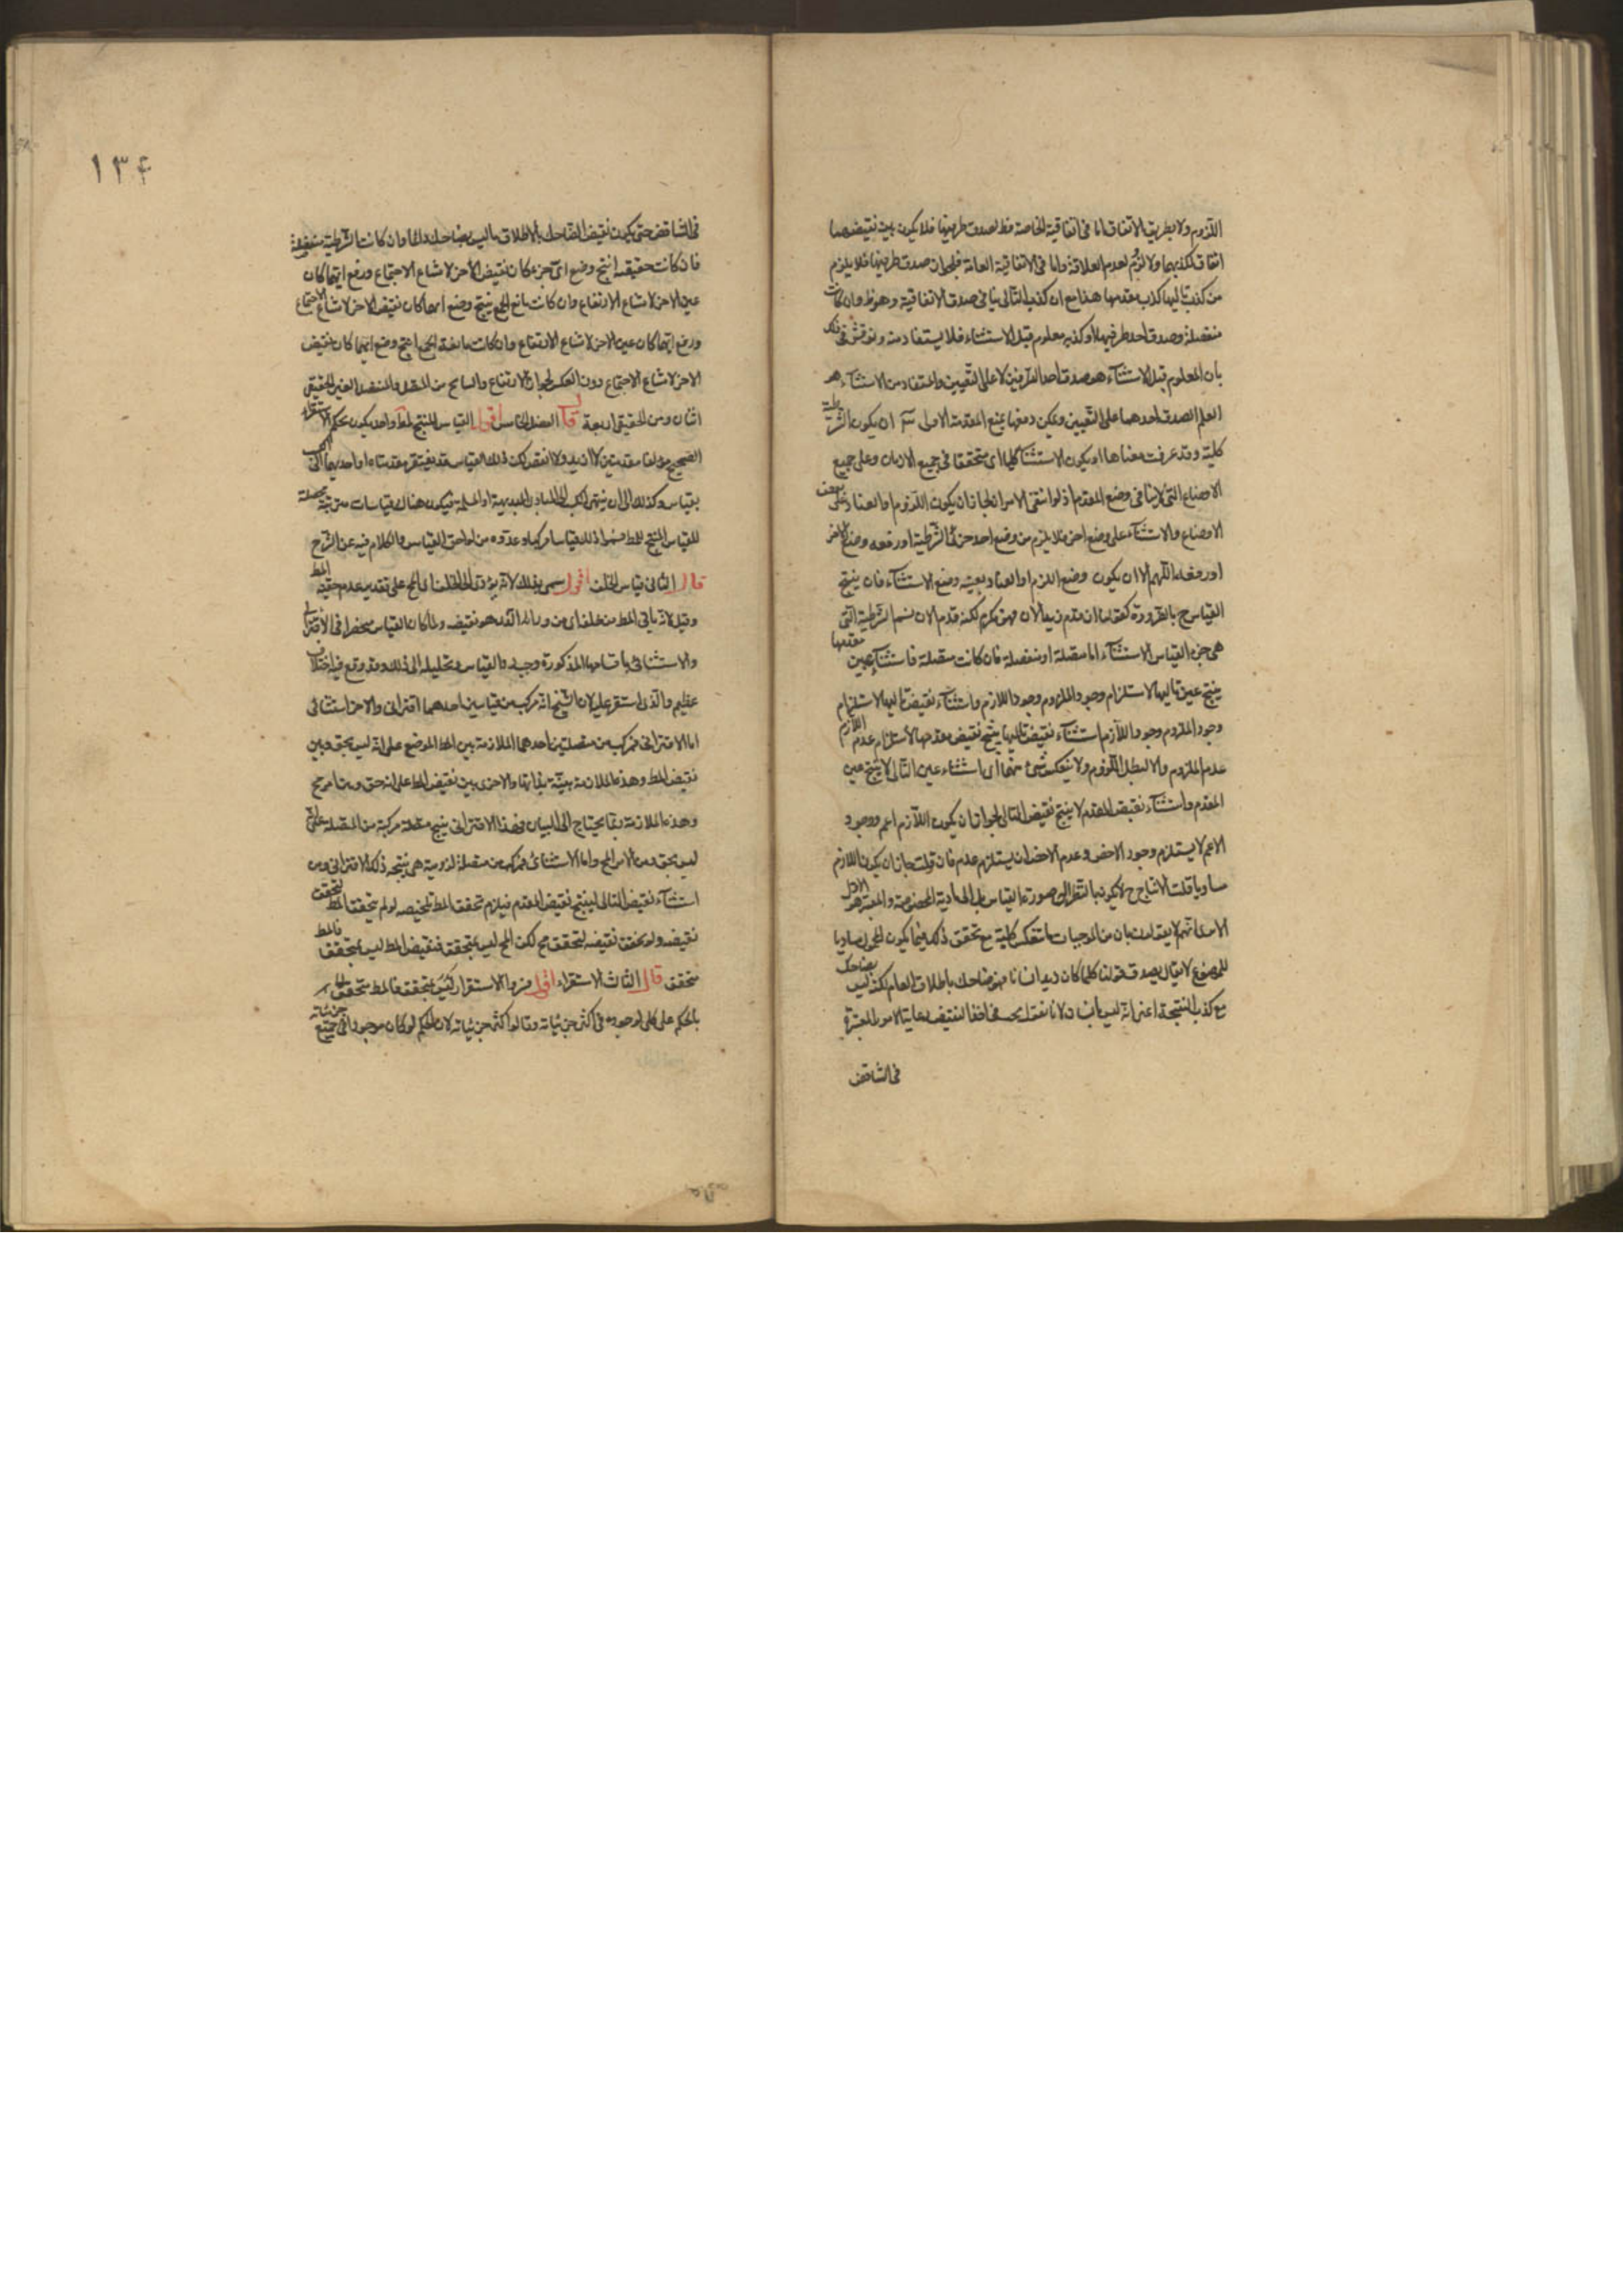 اللزوم ولا بطريق الاتفاق اما في اتفاقية الخاصة فظ لصدق طرفيها فلا يكون بين نقيضهما
اتفاق لكذبهما ولا لزوم لعدم العلاقة واما في الاتفاقية العامة فلجواز صدق طرفيها فلا يلزم
من كذب تاليها كذب مقدمها هذا مع ان كذب التالي ينافي صدق الاتفاقية وهو ظ وان كانت
منفصلة وصدق احد طرفيها او كذبه معلوم قبل الاستثناء فلا يستفاد منه ونوقش في ذلك
بان المعلوم قبل الاستثناء هو صدق احد الطرفين لا على التعيين والمستفاد من الاستثناء هو
العلم لصدق احدهما على التعيين ويمكن دفعها بمنع المقدمة الاولى ان يكون الشرطية
كلية وقد عرفت معناها او يكون الاستثنا كليا اى متحققا في جميع الازمان وعلى جميع
الاوضاع التي لا ينافي وضع المقدم اذ لو انتفى الامران لجاز ان يكون اللزوم او العناد على بعض
الاوضاع والاستثناء على وضع اخر فلا يلزم من وضع احد جزئي الشرطية او رفعه وضع الاخر
او رفعه اللهم الا ان يكون وضع اللزوم او العناد بعينه وضع الاستثناء فان ينتج
القياس ح بالضرورة كقولنا ان قدم زيد الان فهو مكرم لكنه قدم الان ثم الشرطية التي
هي جزء القياس الاستثناء اما متصلة او منفصلة فان كانت متصلة فاستثناء عين مقدمها
ينتج عين تاليها لاستلزام وجود الملزوم وجود اللازم واستثناء نقيض تاليها لاستلزام
وجود الملزوم وجود اللازم استثناء نقيض تاليها ينتج نقيض مقدمها لاستلزام عدم اللازم
عدم الملزوم والا لبطل اللزوم ولا ينعكس شئ منهما اى استثناء عين التالي لا ينتج عين
المقدم واستثناء نقيض المقدم لا ينتج نقيض التالي لجواز ان يكون اللازم اعم ووجود
الاعم لا يستلزم وجود الاخص وعدم الاخص لا يستلزم عدمه فان قلت جاز ان يكون اللازم
مساويا قلت الانتاج ح لا يكون بالنظر الى صورة القياس بل الى المادية المخصوصة والمعتبر هو الاول
الا نهم لا يعتدون بان من الموجبات ما تنعكس كلية مع تحقق ذلك فيما يكون المحمول مساويا
للموضوع لا يقال يصدق قولنا كلما كان زيد انسانا فهو ضاحك باطلاق العام لكنه ليس بضاحك
مع كذب النتيجة اعني انه ليس بانسان لانا نقول يجب في اخذ النقيض رعاية الامور المعتبرة
في التناقض
١٣۴
في التناقض حتى يكون نقيض الضاحك بالاطلاق ما ليس بضاحك دائما وان كانت الشرطية منفصلة
فان كانت حقيقية انتج وضع اى جزء كان نقيض الاخر لامتناع الاجتماع ورفع ايهما كان
عين الاخر لامتناع الارتفاع وان كانت مانع الجمع ينتج وضع ايهما كان نقيض الاخر لامتناع الاجتماع
ورفع ايهما كان عين الاخر لامتناع الارتفاع وان كانت مانعة الجمع انتج وضع ايهما كان نقيض
الاخر لامتناع الاجتماع دون العكس لجواز الارتفاع والسانح من المتصل والمنفصل الغير الحقيقي
اثنان ومن الحقيقي اربعة قال الفصل الخامس اقول القياس المنتج لمط واحد يكون بحكم الاستقراء
الصحيح مؤلفا من مقدمتين لا ازيد ولا انقص لكن ذلك القياس قد يفتقر مقدمتاه او احديهما الى الكسب
بقياس وكذلك الى ان ينتهي الكسب الى المبادي البديهية او المسلمة فيكون هناك قياسات مترتبة محصلة
للقياس المنتج للمط فسموا ذلك قياسا مركبا وعدوه من لواحق القياس والكلام فيه عن الشرح
قال الثاني قياس الخلف اقول سمى بذلك لانه يؤدي الى الخلف اى المح على تقدير عدم حقية المط
وقيل لانه ياتي المط من خلفه اى من ورائه الذي هو نقيضه ولما كان القياس منحصرا في الاقتراني
والاستثنائي باقسامها المذكورة وجب رد القياس وتحليله الى ذلك وقد وقع فيه اختلاف
عظيم والذي استقر عليه راى الشيخ انه مركب من قياسين احدهما اقتراني والاخر استثنائي
اما الاقتراني فمركب من متصلتين احدهما الملازمة بين المط الموضوع على انه ليس بحق وبين
نقيض المط وهذه الملازمة بينة بذاتها والاخرى بين نقيض المط على انه حق وبين امر مح
وهذه الملازمة ربما يحتاج الى البيان فهذا الاقتراني ينتج متصلة مركبة من المتصلة على انه
ليس بحق ومن الامر المح واما الاستثنائي فمركب من متصلة لزومية هي نتيجة ذلك الاقتراني ومن
استثناء نقيض التالي لينتج نقيض المقدم فيلزم تحقق المط تلخيصه لو لم يتحقق المط لتحقق
نقيضه ولو تحقق نقيضه لتحقق مح لكن المح ليس بمتحقق فنقيض المط ليس بمتحقق فالمط
متحقق قال الثالث الاستقراء اقول فسروا الاستقراء
بالحكم على كلي لوجوده في اكثر جزئياته وقالوا اكثر جزئياته لان الحكم لو كان موجودا في جميع جزئياته